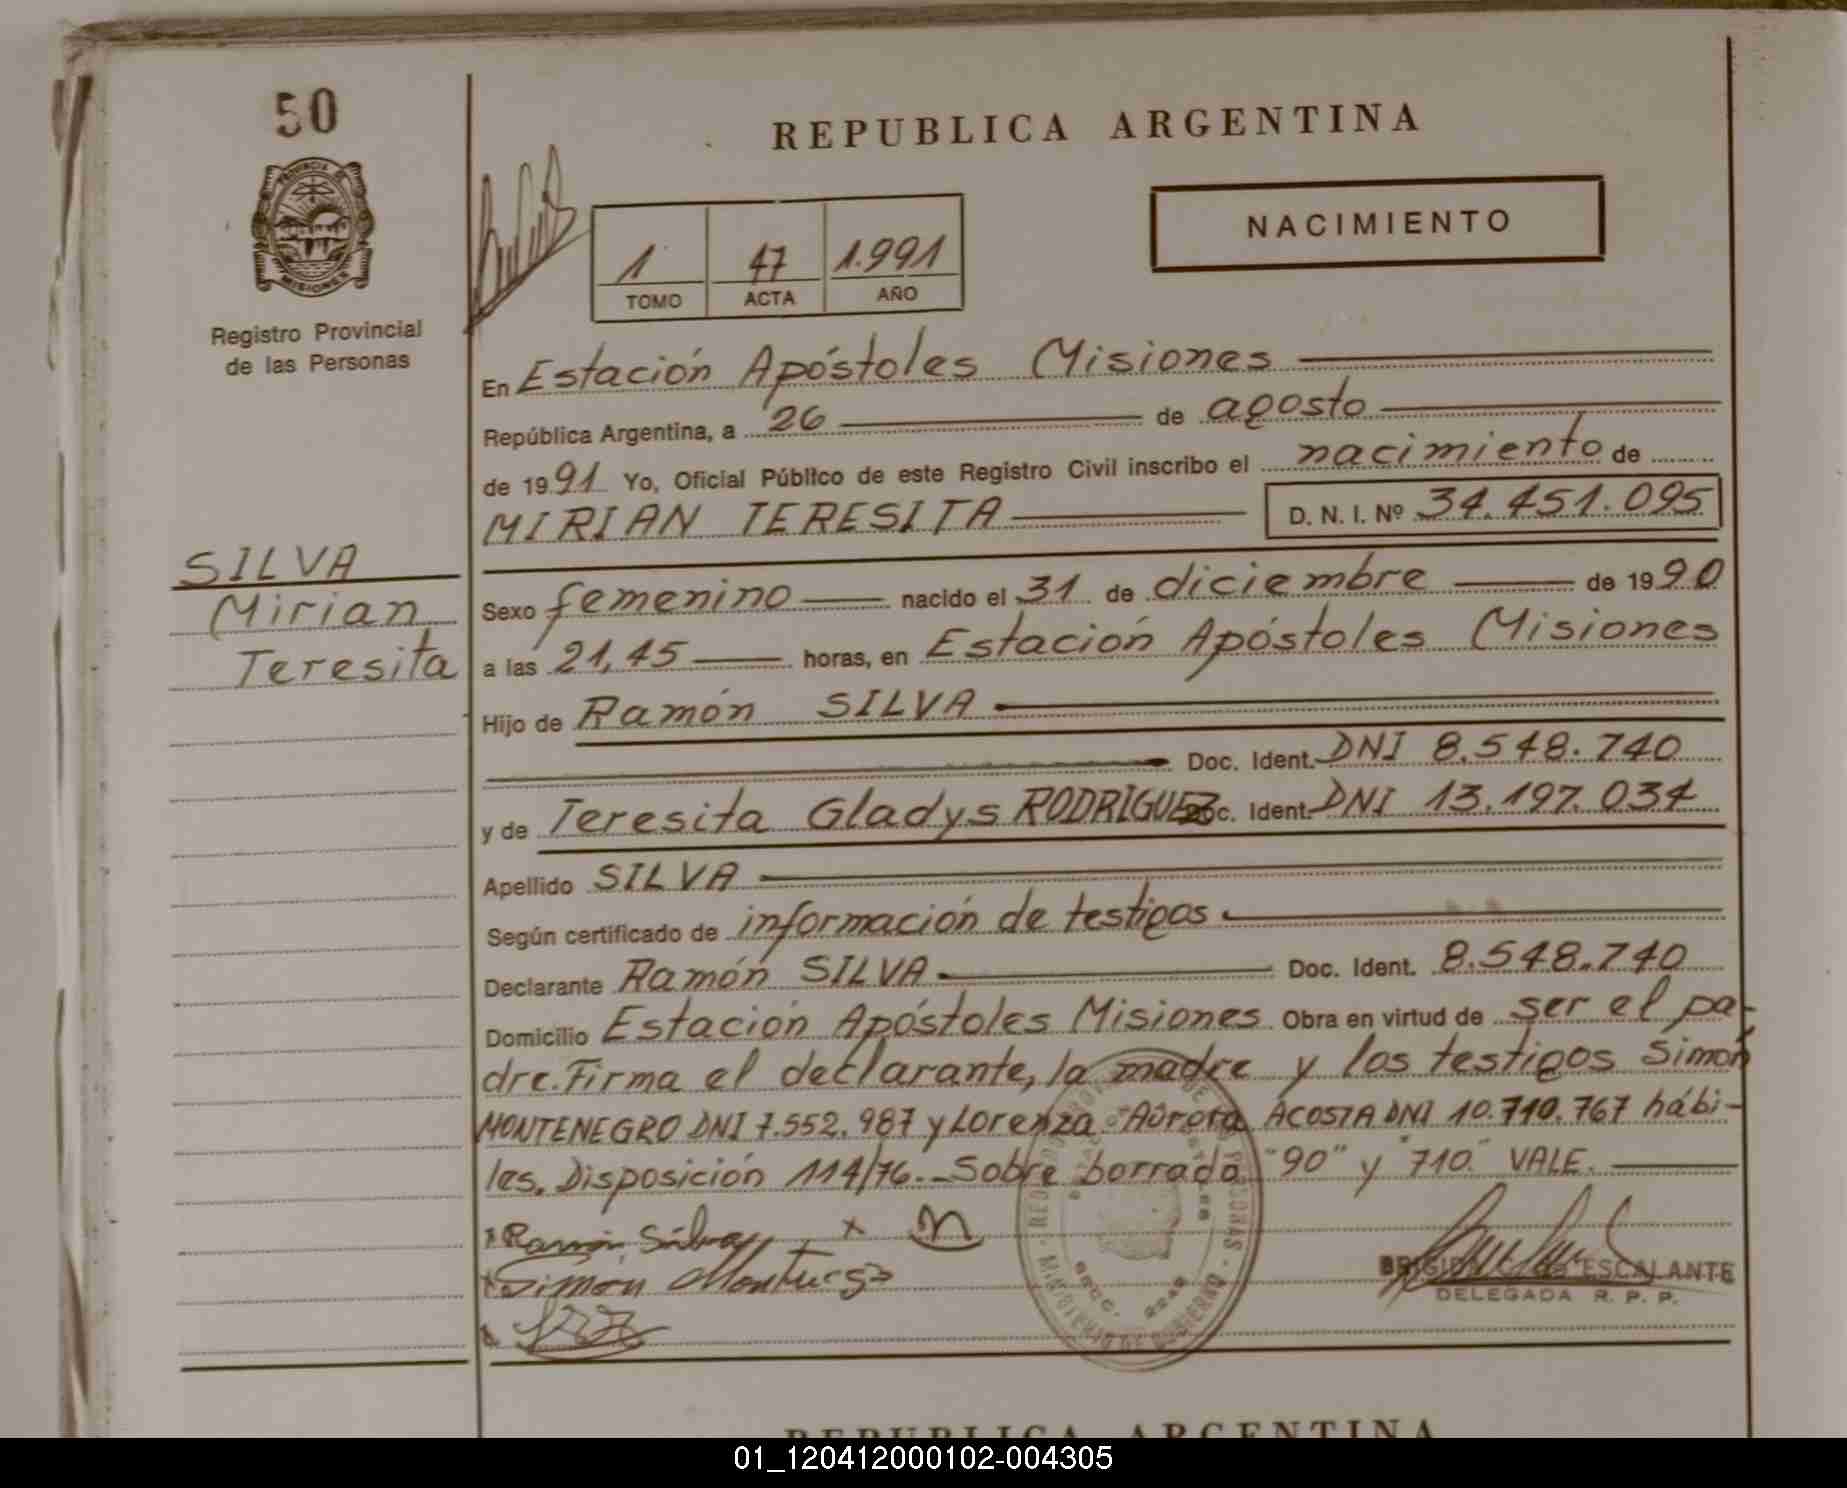 50
PROVINCIA DE
MISIONES
Registro Provincial
de las Personas
SILVA
Mirian
Teresita
REPUBLICA ARGENTINA
NACIMIENTO
1 47 1.991
TOMO ACTA AÑO
En Estación Apóstoles Misiones
República Argentina, a 26 de agosto
de 1991 Yo, Oficial Público de este Registro Civil inscribo el nacimiento de
MIRIAN TERESITA D. N. I. Nº 34.451.095
Sexo femenino nacido el 31 de diciembre de 1990
a las 21,45 horas, en Estación Apóstoles Misiones
Hijo de Ramón SILVA
Doc. Ident. DNI 8.548.740
y de Teresita Gladys RODRIGUEZ Doc. Ident. DNI 13.197.034
Apellido SILVA
Según certificado de información de testigos
Declarante Ramón SILVA Doc. Ident. 8.548.740
Domicilio Estación Apóstoles Misiones Obra en virtud de ser el pa-
dre. Firma el declarante, la madre y los testigos Simón
MONTENEGRO DNI 7.552.987 y Lorenza Aurora ACOSTA DNI 10.710.767 hábi-
les. Disposición 114/76.- Sobre borrado "90" y "710" VALE.
Ramón Silva x
x Simón
ESCALANTE
DELEGADA R. P. P.
MINISTERIO DE GOBIERNO
REPUBLICA ARGENTINA
01_120412000102-004305